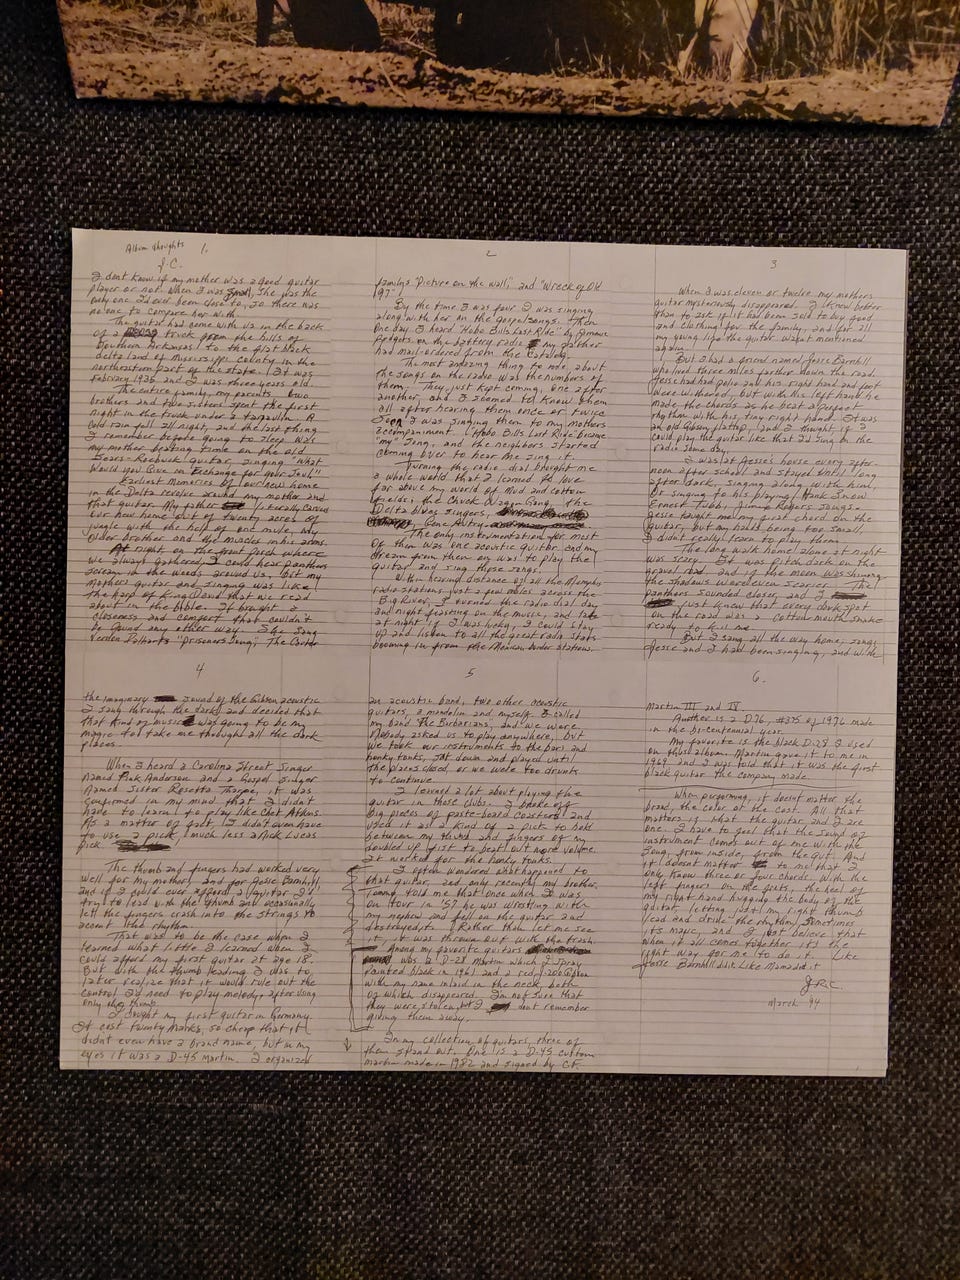 Album thoughts 1.
J.C.
I don't know if my mother was a good guitar
player or not. When I was small, she was the
only one I'd ever been close to, so there was
no one to compare her with.
The guitar had come with us in the back
of a truck from the hills of
Southern Arkansas to the flat black
delta land of Mississippi county in the
northeastern part of the state. It was
February 1935 and I was three years old.
The entire family, my parents two
brothers and two sisters spent the first
night in the truck under a tarpaulin. A
cold rain fell all night, and the last thing
I remember before going to sleep was
my mother beating time on the old
Sears-Roebuck guitar singing "What
Would you Give in Exchange for your Soul"
Earliest Memories of our new home
in the Delta revolve around my mother and
that guitar. My father literally carved
our new home out of twenty acres of
jungle with the help of one mule, my
older brother and the muscles in his arms.
At night on the front porch where
we always gathered, I could hear panthers
scream in the woods around us, but my
mothers guitar and singing was like
the harp of King David that we read
about in the bible. It brought a
closeness and comfort that couldn't
be found any other way. She sang
Vernon Dalharts "Prisoners Song", The Carter
2
family's "Picture on the wall", and "Wreck of Old
97"
By the time I was four I was singing
along with her on the gospel songs. Then
one day I heard "Hobo Bills Last Ride" by Jimmie
Rodgers on the battery radio my father
had mail-ordered from the catalog.
The most amazing thing to me about
the songs on the radio was the numbers of
them. They just kept coming, one after
another, and I seemed to know them
all after hearing them once or twice
Soon I was singing them to my mothers
accompaniment. "Hobo Bills Last Ride became
"my" song, and the neighbors started
coming over to hear me sing it.
Turning the radio dial brought me
a whole world that I learned to love
far above my world of mud and cotton
fields; the Chuck Wagon Gang, the
Delta blues singers,
Gene Autry
The only instrumentation for most
of them was one acoustic guitar and my
dream from then on was to play the
guitar and sing those songs.
Within hearing distance of all the Memphis
radio stations just a few miles across the
Big River, I turned the radio dial day
and night feasting on the music and late
at night if I was lucky, I could stay
up and listen to all the great radio stars
booming in from the Mexican border stations.
3
When I was eleven or twelve my mothers
guitar mysteriously disappeared. I knew better
than to ask if it had been sold to buy food
and clothing for the family, and for all
my young life the guitar wasn't mentioned
again.
But I had a friend named Jesse Barnhill
who lived three miles farther down the road.
Jesse had had polio and his right hand and foot
were withered, but with his left hand he
made the chords as he beat a perfect
rhythm with his tiny right hand. It was
an old Gibson flattop, and I thought if I
could play the guitar like that I'd sing on the
radio some day.
I was at Jesse's house every after-
noon after school and stayed until long
after dark, singing along with him
Or singing to his playing Hank Snow
Ernest Tubb, Jimmie Rogers songs.
Jesse taught me my first chord on the
guitar, but my hand being too small,
I didn't really learn to play them.
The long walk home alone at night
was scary. It was pitch dark on the
gravel road and if the moon was shining
the shadows were even scarier. The
panthers sounded closer, and I
just knew that every dark spot
on the road was a cottonmouth snake
ready to kill me.
But I sang all the way home, songs
Jesse and I had been singing, and with
4
the imaginary sound of the Gibson acoustic
I sang through the dark and decided that
that kind of music was going to be my
magic to take me thought all the dark
places.
When I heard a Carolina Street Singer
named Pink Anderson and a Gospel Singer
named Sister Rosetta Tharpe, it was
confirmed in my mind that I didn't
have to learn to play like Chet Atkins.
As a matter of fact I didn't even have
to use a pick, much less a Nick Lucas
Pick.
The thumb and fingers had worked very
well for my mother, and for Jesse Barnhill,
and if I could ever afford a guitar I'd
try to lead with the thumb and occasionally
let the fingers crash into the strings to
accent the rhythm.
That was to be the case when I
learned what little I learned when I
could afford my first guitar at age 18.
But with the thumb leading I was to
later realize that it would rule out the
control I'd need to play melody, after using
only the thumb.
I bought my first guitar in Germany.
It cost twenty Marks, so cheap that it
didn't even have a brand name, but in my
eyes it was a D-45 Martin. I organized
5
an acoustic band, two other acoustic
guitars, a mandolin and myself. I called
my band The Barbarians, and we were.
Nobody asked us to play anywhere, but
we took our instruments to the bars and
honky tonks, sat down and played until
the places closed, or we were too drunk
to continue.
I learned a lot about playing the
guitar in those clubs. I broke off
big pieces of paste-board coasters and
used it as a kind of a pick to hold
between my thumb and fingers of my
doubled up fist to beat out more volume.
It worked for the honky tonks.
I often wondered what happened to
that guitar, and only recently my brother,
Tommy told me that once when I was
on tour in '57 he was wrestling with
my nephew and fell on the guitar and
destroyed it. Rather than let me see
it it was thrown out with the trash.
Among my favorite guitars
was a D-28 Martin which I spray
painted black in 1961 and a red J200 Gibson
with my name inlaid in the neck, both
of which disappeared. I'm not sure that
they were stolen but I don't remember
giving them away.
In my collection of guitars, three of
them stand out. One is a D-45 custom
martin made in 1982 and signed by C.F.
6.
Martin III and IV.
Another is a D76, #375 of 1976 made
in the bi-centennial year.
My favorite is the black D-28 I used
on this album. Martin gave it to me in
1969 and I was told that it was the first
black guitar the company made.
When performing, it doesn't matter the
brand, the color or the cost. All that
matters is that the guitar and I are
one. I have to feel that the sound of
instrument comes out of me with the
song, from inside, from the gut. And
it doesn't matter to not that I
only know three or four chords. With the
left fingers on the frets, the heel of
my right hand hugging the body of the
guitar, letting just my right thumb
lead and drive the rhythm, sometimes
it's magic, and I just believe that
when it all comes together it's the
right way for me to do it. Like
Jesse Barnhill did. Like Mama did it
J.R.C.
March '94